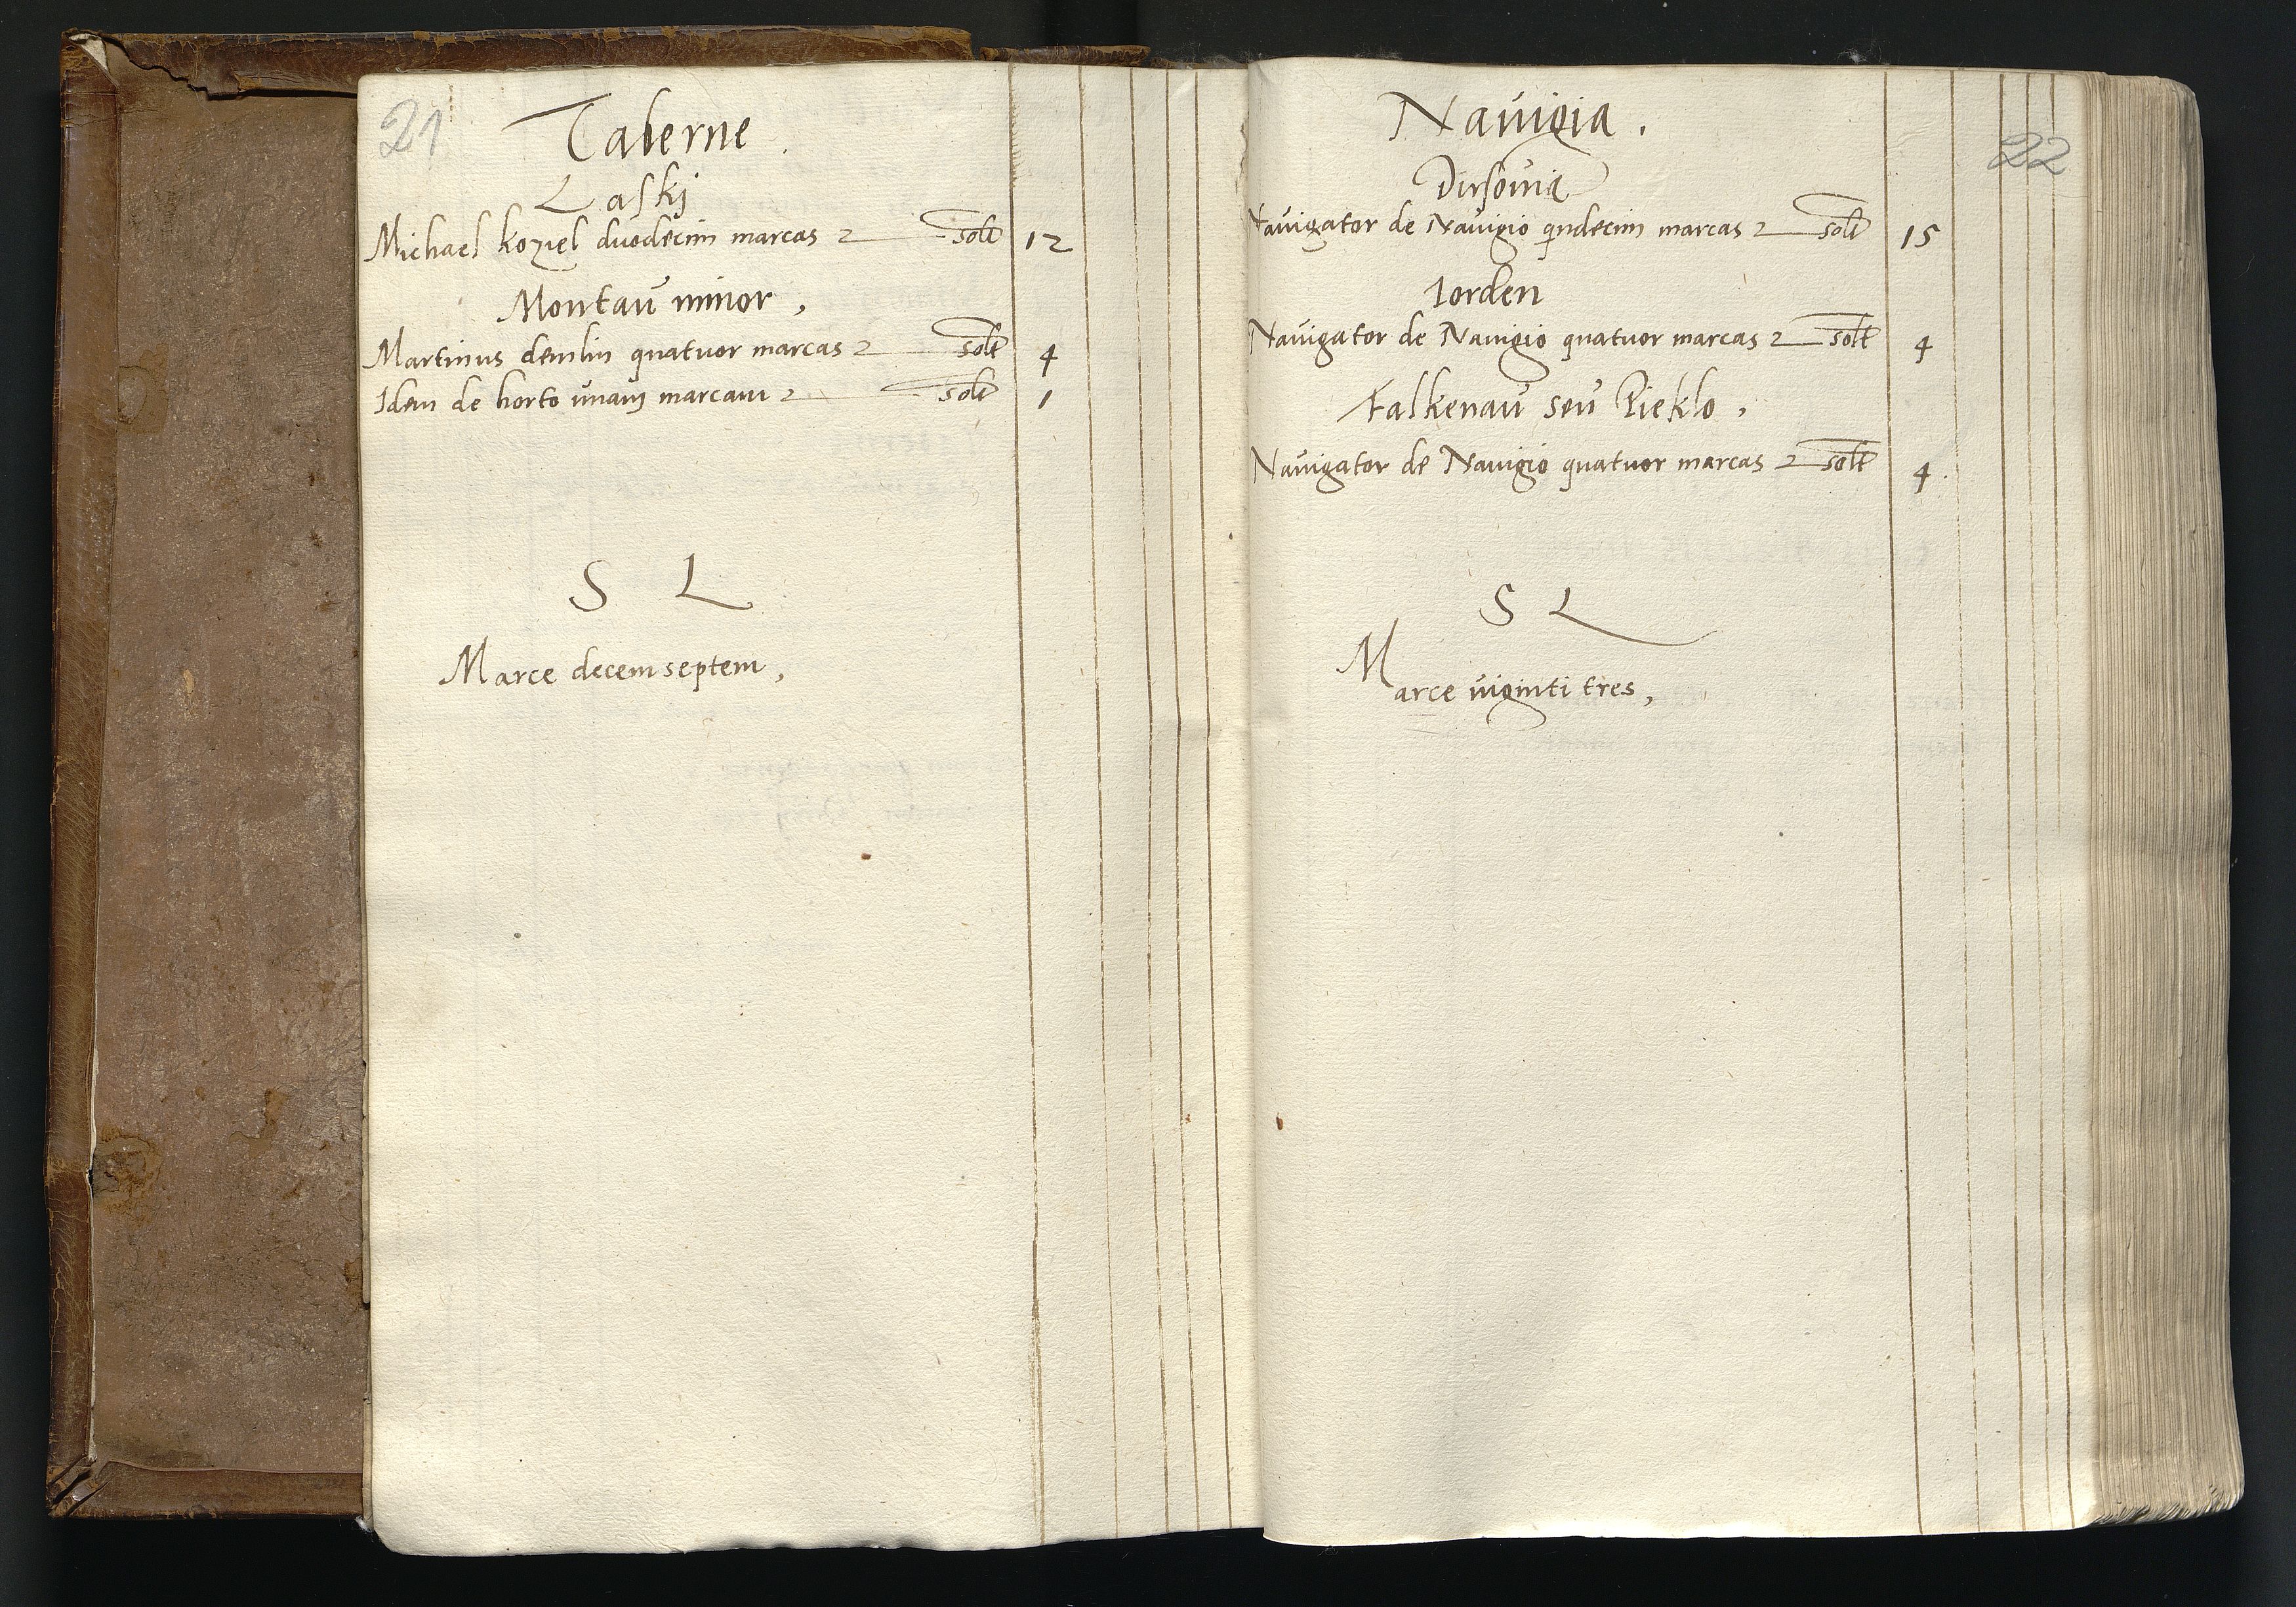 21
Taberne.
Laskj
Michael koziel duodecim marcas 2 solt 12
Montau minor,
Martinus demlin quatuor marcas 2 solt 4
Idem de horto unam marcam 2 solt 1
S L
Marce decem septem,
22
Nauigia.
Dirsouia
Nauigator de Nauigio qindecim marcas 2 solt 15
Iorden
Nauigator de Nauigio quatuor marcas 2 solt 4
Falkenau seu Pieklo,
Nauigator de Nauigio quatuor marcas 2 solt 4.
S L
Marce uiginti tres,